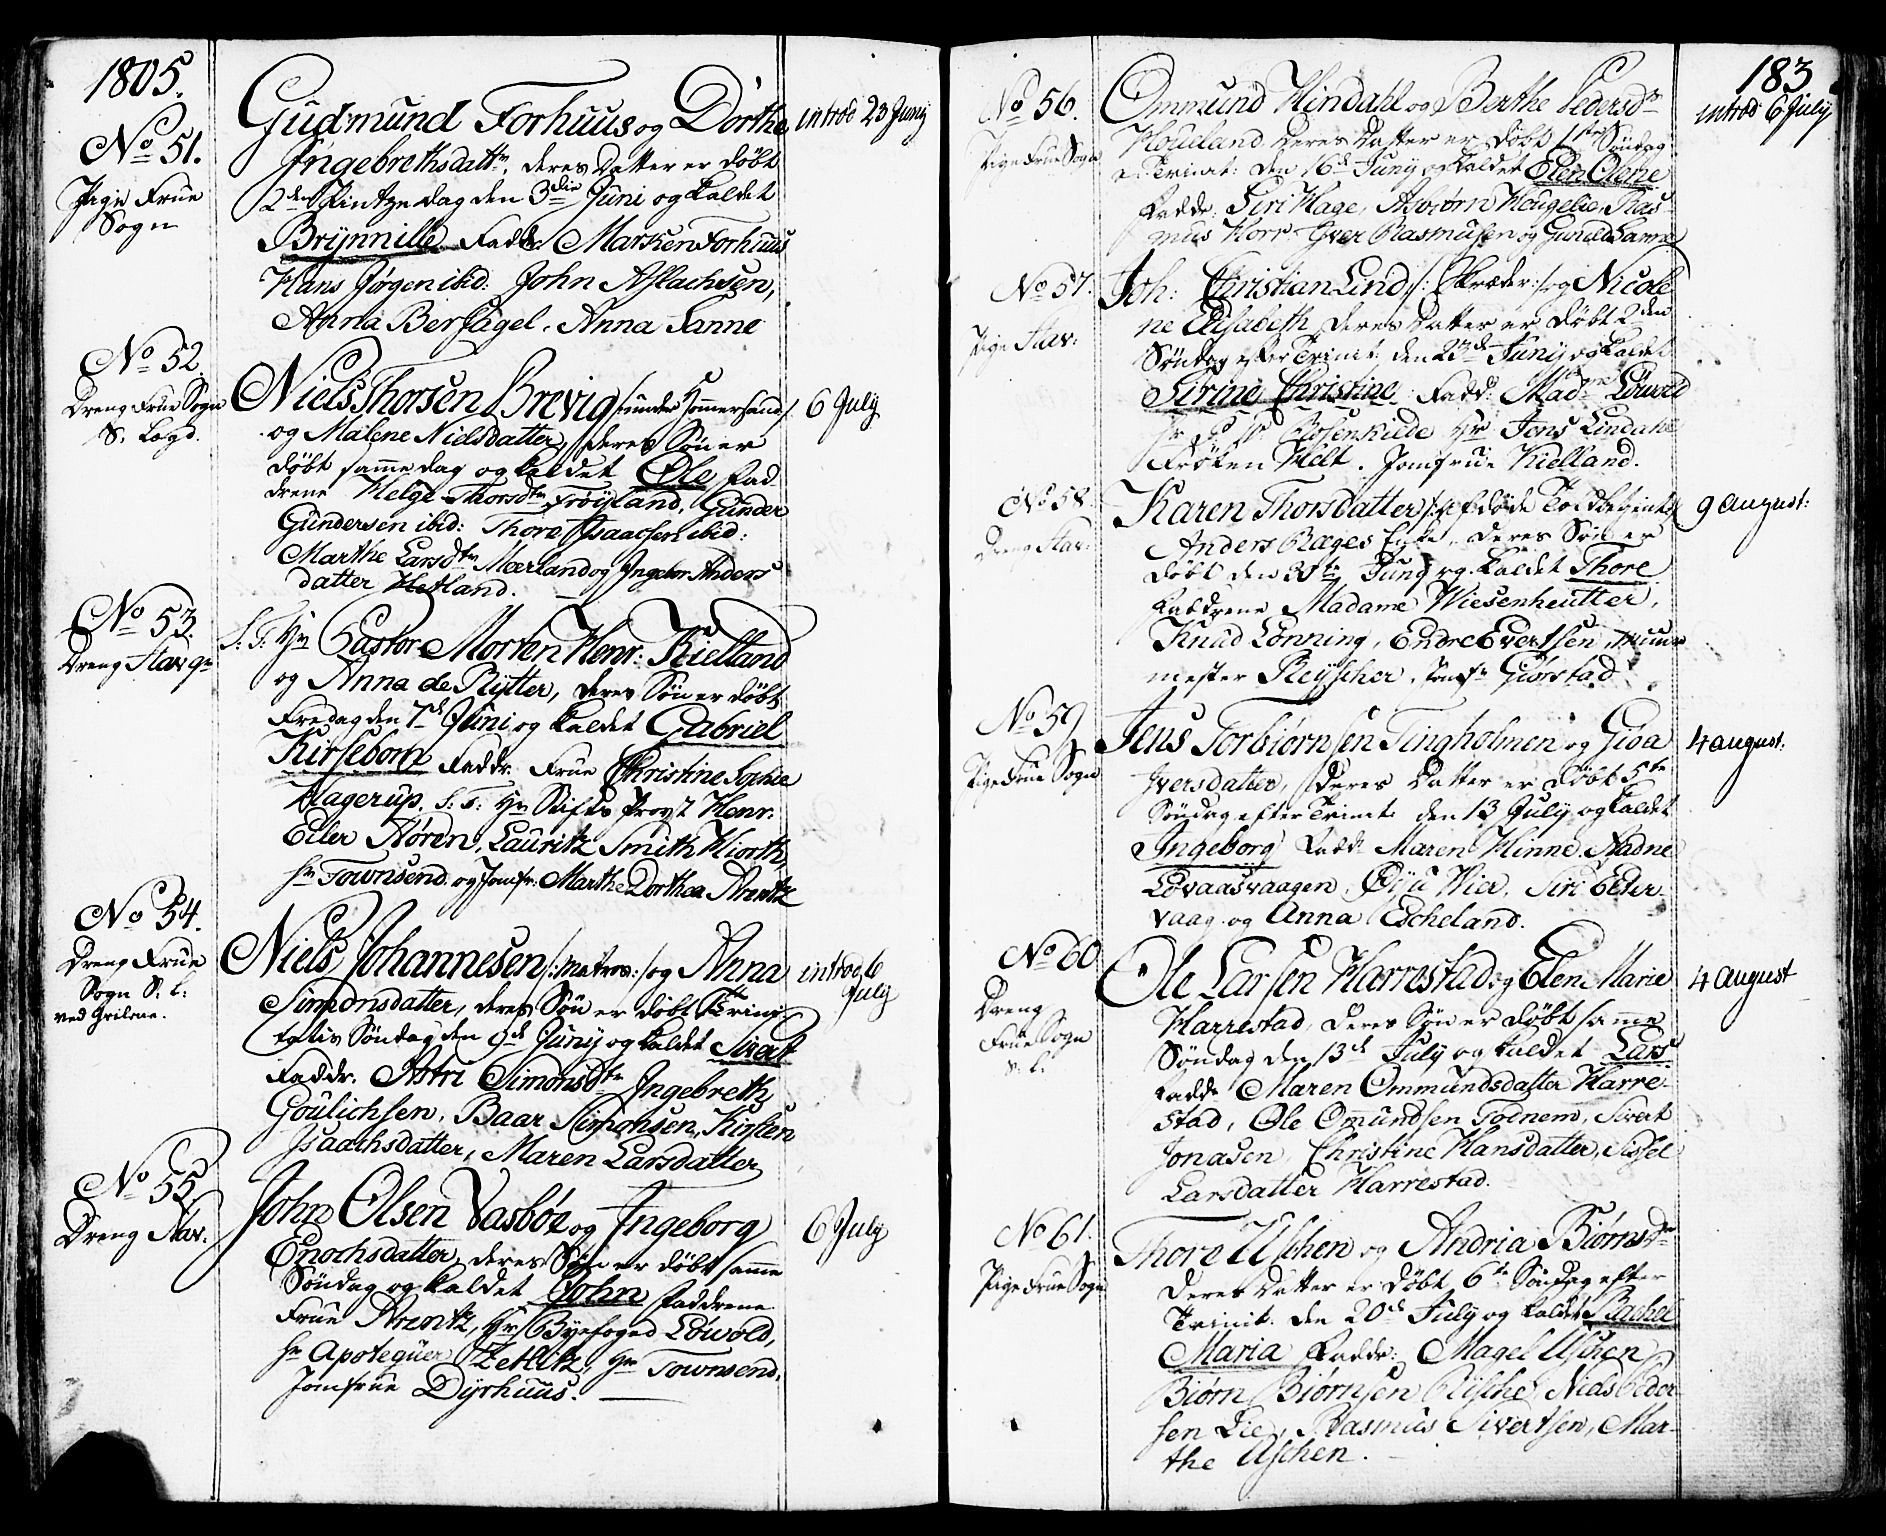 1805.
No 51.
Pige Frue
Sogn
Gudmund Forhuus og Dorthe
Ingebrethsdattr, deres Datter er døbt
2den Pintze dag den 3die Juni og kaldet
Brynnille Fadd: Marken Forhuus
Hans Jørgen ibid: John Aslachsen,
Anna Bersagel. Anna Sanne
introd 23 Junj
No 52.
Dreng Frue Sogn
S. Lægd.
Niels Thorsen Brevig
og Malene Nielsdatter, deres Søn er
døbt samme dag og kaldet Ole Fad
drene Helge Thorsdtr Frøyland, Gunder
Gundersen ibid: Thore Isaachsen ibid:
Marthe Larsdtr Mærland og Ingebor Anders
datter Hetland.
6 July
No 53.
Dreng Stav
S: T: Hr Pastor Morten Henr: Kielland
og Anna de Rytter, deres Søn er døbt
Fredag den 7de Juni og kaldet Gabriel
Kirsebom Faddr. Frue Christine Sophie
Hagerup. S: T: Hr Stifts Provst Henr.
Eiler Støren, Lauritz Smith Hiorth,
Hr Townsend og Jomfr: Marthe Dorthea Arentz
No 54.
Dreng Frue
Sogn S: L:
ved Grilene.
Niels Johannesen /: Matros :/ og Anna
Simonsdatter, deres Søn er døbt Trini
tatis Søndag den 9de Junij og kaldet Sivert
Faddr. Astri Simonsdtr Ingebreth
Goulichsen, Baar Simonsen, Kirsten
Isaachsdatter, Maren Larsdatter
introd 6
July
No 55.
Dreng Stav:
John Olsen Vasbøe og Ingeborg
Enochsdatter, deres Søn er døbt samme
Søndag og kaldet John Faddrene
Frue Arentz, Hr Byefoged Løwold,
Hr Apotequer Zetlitz, Hr Townsend,
Jomfrue Dyrhuus.
6 July
183
No 56.
Pige Frue Sogn
Ommund Hindahl og Berthe Pedersdr
Houland deres Datter er døbt 1ste Søndag
e. Trinit: den 16de Junij og kaldet Elen Olene
Fadd. Siri Hage, Asbiørn Hougelie, Ras-
mus Horr. Iver Rasmusen og Gunild Sanne
introd 6 July
No 57.
Pige Stav:
Joh: Christian Lind /: Skræder :/ og Nicole
ne Elisabeth deres Datter er døbt 2den
Søndag efter Trinit: den 23de Junij og kaldet
Sirine Christine Fadd: Madme Løwold
Hr P. V. Rosenkilde Hr Jens Lindahl
Frøken Helt. Jomfrue Kielland.
No 58.
Dreng Stav:
Karen Thorsdatter /: Afdøde
Anders Rages Enke, deres Søn er
døbt den Junj og kaldet Thore
Faddrene Madame Wiesenheutter,
Knud Lønning, Endre Evertsen, Muur
mester Reyscher, Jomfr Giørstad
9 August:
No 59
Pige Frue Sogn
Jens Torbiørnsen Tingholmen og Gioa
Iversdatter, deres Datter er døbt 5te
Søndag efter Trinit: den 13 July og kaldet
Ingeborg Fadd: Maren Hinne Aadne
Løvaasvaagen, Øiju Hier. Siri Eder
vaag og Anna Escheland.
4 August.
No 60
Dreng
Frue Sogn
S. L.
Ole Larsen Harrestad og Elen Marie
Harrestad, deres Søn er døbt samme
Søndag den 13de July og kaldet Lars
Fadd: Maren Ommundsdatter Harre-
stad, Ole Omundsen Todnem, Sivert
Jonasen, Christine Hansdatter, Sissel
Larsdatter Harrestad.
4 August
No 61.
Pige Frue Sogn
Thore Uschen og Andria Biørnsdr
deres Datter er døbt 6te Søndag efter
Trinit. den 20de July og kaldet Rachel
Maria Faddr: Magel Uschen
Biørn Biørnsen Rische, Niels Peder-
sen Lie, Rasmus Sivertsen, Mar-
the Uschen.